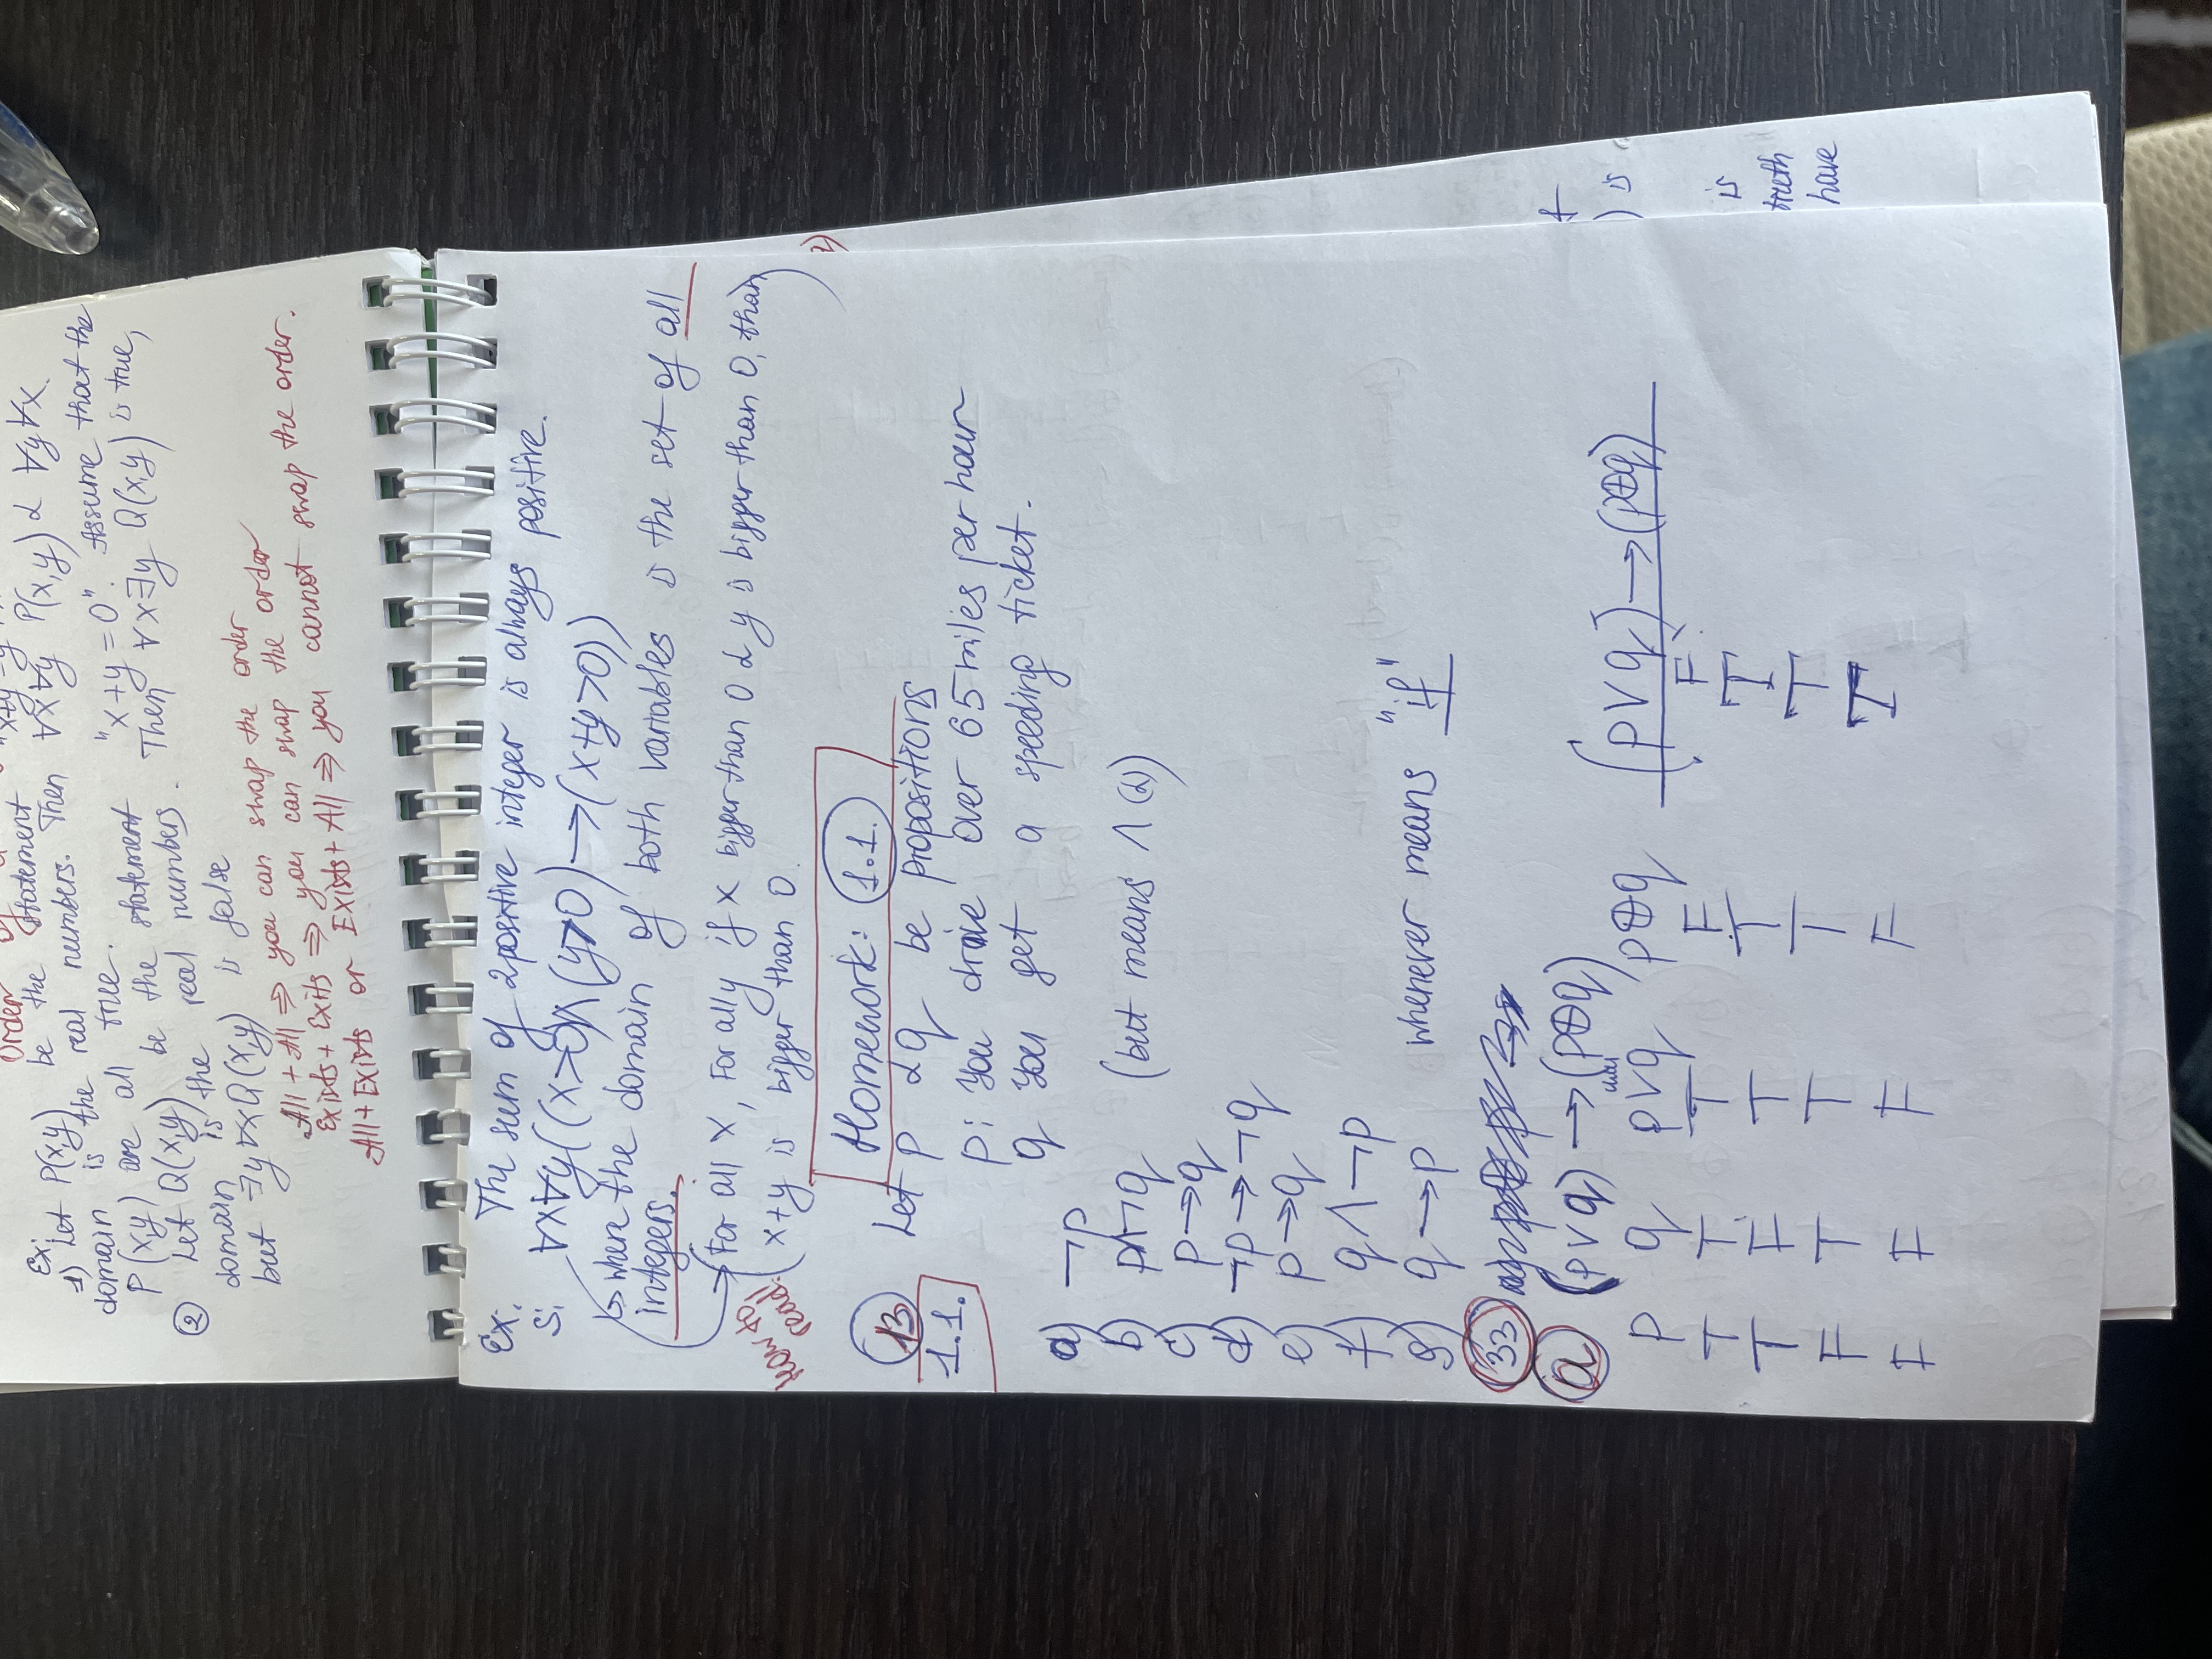 Order of
Ex:
1) Let P(x,y) be the statement "x+y=y
domain is the real numbers. Then ∀x∀y P(x,y) & ∀y∀x
P(x,y) are all true.
② Let Q(x,y) be the statement "x+y=0". Assume that the
domain is the real numbers. Then ∀x∃y Q(x,y) is true,
but ∃y∀xQ(x,y) is false
All + All ⇒ you can swap the order
Exists + Exits ⇒ you can swap the order
All+Exists or Exists+All ⇒ you cannot swap the order.
Ex: The sum of 2 positive integer is always positive.
S: ∀x∀y((x>0)∧(y>0)→(x+y>0))
↳ where the domain of both variables is the set of all
integers.
(For all x, For all y if x bigger than 0 & y is bigger than 0, than
x+y is bigger than 0.)
How to
read!
Homework: 1.1.
13
1.1.
Let p & q be propositions
p: You drive over 65 miles per hour
q You get a speeding ticket.
a) ¬p
b) p∧¬q (but means ∧ (&))
c) p→q
d) ¬p→¬q
e) p→q
f) q∧¬p
g) q→p whenever means "if"
33
a (p∨q)→(p⊕q)
p q p∨q p⊕q (p∨q)→(p⊕q)
T T T F F
T F T T T
F T T T T
F F F F T
is
is
truth
have